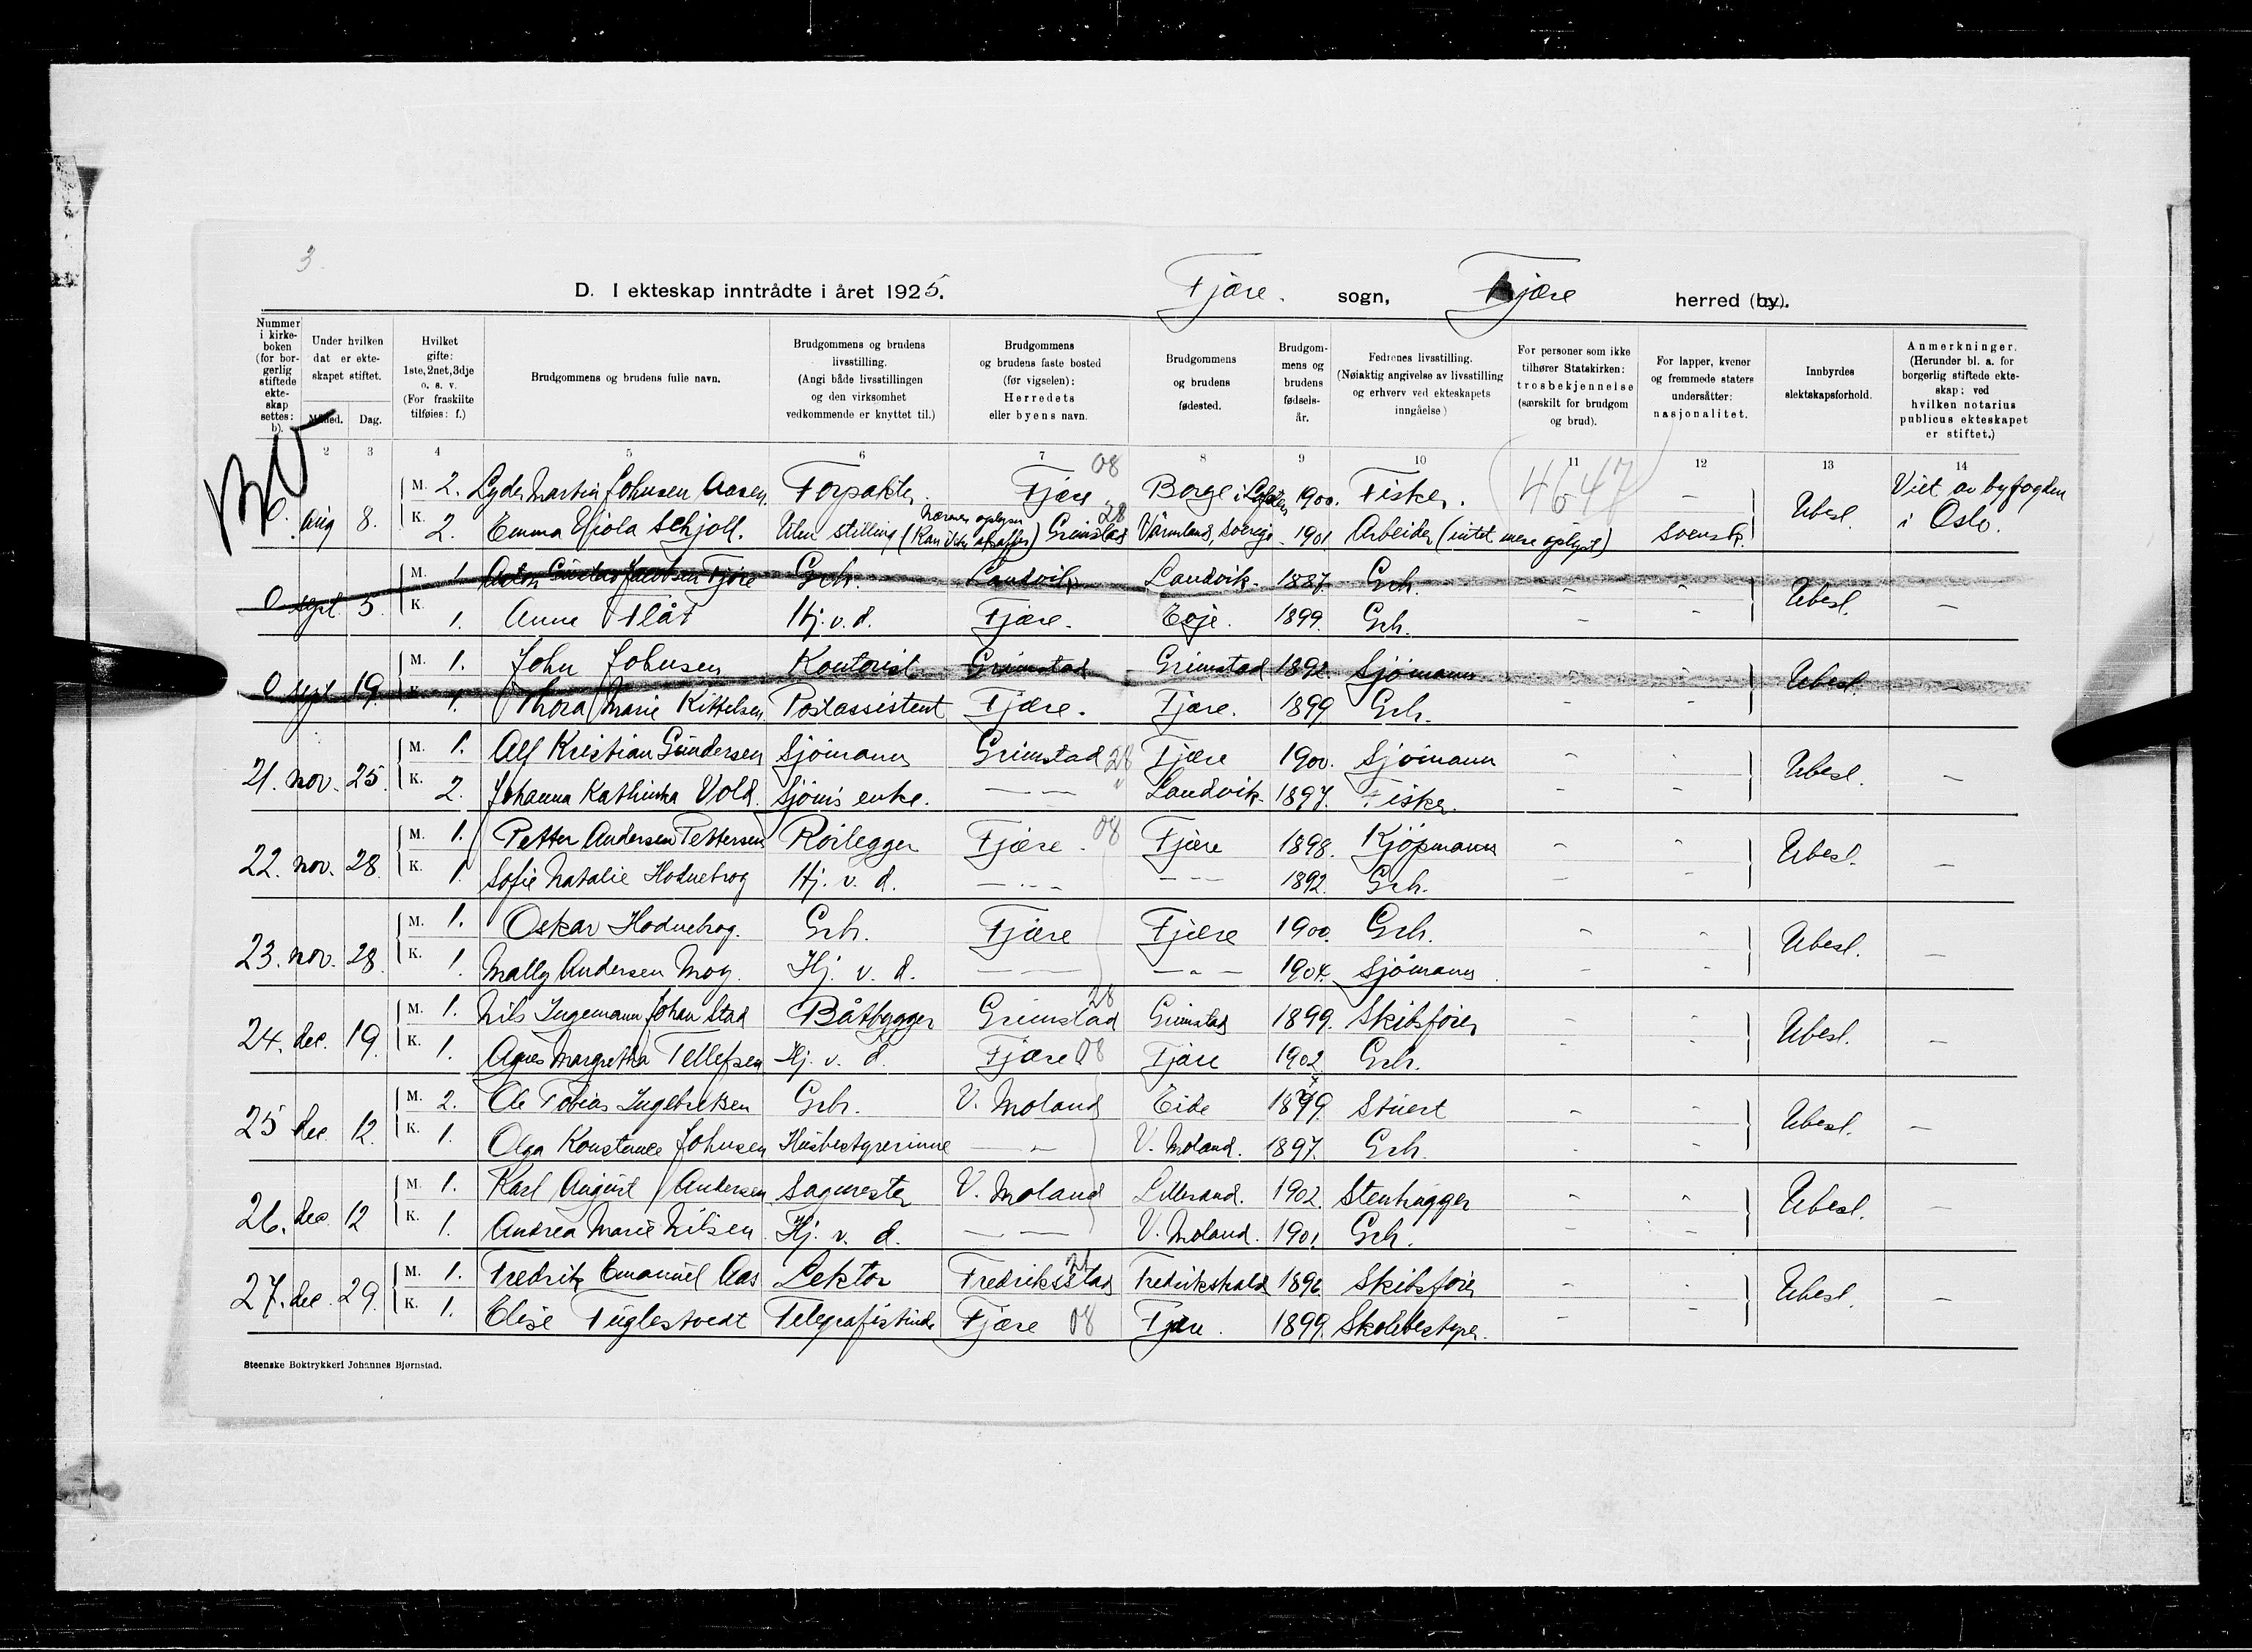 3
D. I ekteskap inntrådte i året 1925. Fjære. sogn, Fjære herred (by).
Nummer i kirkeboken (for borgerlig stiftede ekteskap settes: b).
Under hvilken dat er ekteskapet stiftet.
Måned. Dag.
Hvilket gifte: 1ste, 2net, 3dje o. s. v. (For fraskilte tilføies: f.)
Brudgommens og brudens fulle navn.
Brudgommens og brudens livsstilling. (Angi både livsstillingen og den virksomhet vedkommende er knyttet til.)
Brudgommens og brudens faste bosted (før vigselen): Herredets eller byens navn.
Brudgommens og brudens fødested.
Brudgommens og brudens fødselsår.
Fedrenes livsstilling. (Nøiaktig angivelse av livsstilling og erhverv ved ekteskapets inngåelse)
For personer som ikke tilhører Statskirken: trosbekjennelse (særskilt for brudgom og brud).
For lapper, kvener og fremmede staters undersåtter: nasjonalitet.
Innbyrdes slektskapsforhold.
Anmerkninger. (Herunder bl. a. for borgerlig stiftede ekteskap: ved hvilken notarius publicus ekteskapet er stiftet.)
2 3 4 5 6 7 8 9 10 11 12 13 14
M. 2. Lyder Martin Johnsen Aasen Forpakter. Fjære 08 Borge i Lofoten 1900. Fisker. 4647 - Viet av byfogden
aug 8. K. 2. Emma Viola Schjoll. Uten stilling (Nærmere oplysn. Kan ikke skaffes) Grimstad 28 Värmland, Sverige 1901 Arbeider (intet mere oplyst) svensk. Ubesl. i Oslo.
M. 1. Anton Gustav Jacobsen Fjære Grb. Landvik Landvik. 1887. Grb. - -
0 sept. 5. K. 1. Anna Flåt Hj. v. d. Fjære. Eoje. 1899. Grb. - - Ubesl. -
M. 1. John Johnsen Kontorist Grimstad Grimstad 1892. Sjømann - -
0 sept 19. K. 1. Thora Marie Kittelsen Postassistent Fjære. Fjære. 1899 Grb. - - Ubesl. -
M. 1. Alf Kristian Gundersen Sjømann Grimstad 28 Fjære 1900. Sjømann - -
21. nov. 25. K. 2. Johanna Kathinka Vold. Sjøm's enke. — — " Landvik. 1897. Fisker. - - Ubesl. -
M. 1. Petter Andersen Pettersen Rørlegger Fjære. 08 Fjære 1898. Kjøpmann - -
22. nov. 28. K. 1. Sofie Natalie Hodnebrog Hj. v. d. — — — — 1892. Grb. - - Ubesl. -
M. 1. Oskar Hodnebrog. Grb. Fjære Fjære 1900. Grb. - -
23. nov. 28. K. 1. Mally Andersen Moy. Hj. v. d. — — — " — 1904. Sjømann. - - Ubesl. -
M. 1. Nils Ingemann Johan Stad Båtbygger Grimstad 28 Grimstad 1899. Skibsfører - -
24. dec. 19. K. 1. Agnes Margretha Tellefsen Hj. v. d. Fjære 08 Fjære 1902. Grb. - - Ubesl. -
M. 2. Ole Tobias Ingebretsen Grb. V. Moland Eide 1899. Stuert - -
25 dec. 12. K. 1. Olga Konstanse Johnsen Husbestyrerinne — " — V. Moland. 1897. Grb. - - Ubesl. -
M. 1. Karl August Andersen Sagmester V. Moland Lillesand. 1902. Stenhugger - -
26. dec. 12 K. 1. Andrea Marie Nilsen. Hj. v. d. — — V. Moland. 1901. Grb. - - Ubesl. -
M. 1. Fredrik Emanuel Aas Lektor Fredriksstad Fredrikshald 1896 Skibsfører - -
27. dec. 29. K. 1. Elise Fuglestvedt Telegrafistinde Fjære 08 Fjære. 1899. Skolebestyrer. - - Ubesl. -
Steenske Boktrykkeri Johannes Bjørnstad.